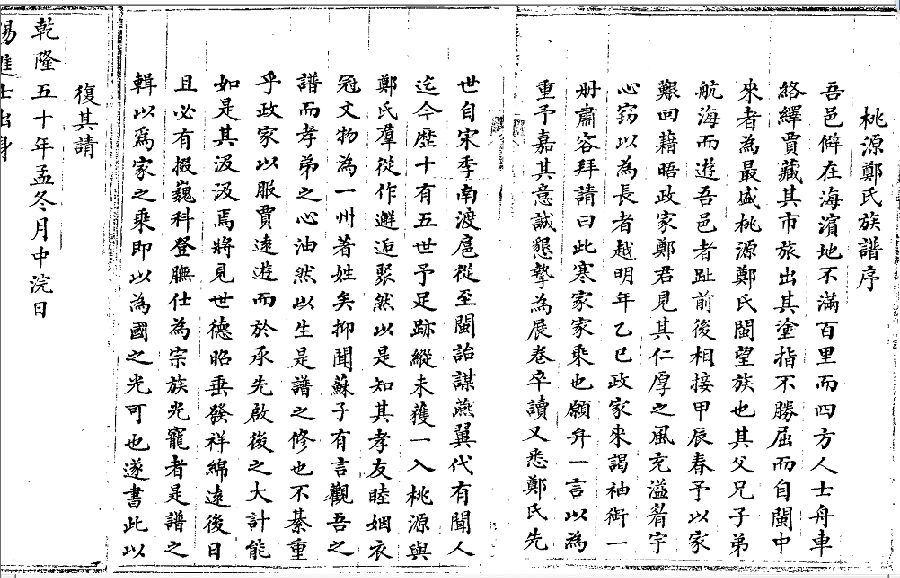 桃源鄭氏族譜序
吾邑僻在海濱地不滿百里而四方人士舟車
絡繹賈藏其市旅出其塗指不勝屈而自閩中
來者為最盛桃源鄭氏閩望族也其父兄子弟
航海而遊吾邑者趾前後相接甲辰春予以家
艱回藉晤政家鄭君見其仁厚之風充溢眉宇
心窃以為長者越明年乙巳政家來謁袖銜一
册肅容拜請曰此寒家家乘也願弁一言以為
重予嘉其意誠懇摯為展卷卒讀又悉鄭氏先
世自宋季南渡扈從至閩詒謀燕翼代有聞人
迄今歷十有五世予足跡縱未獲一入桃源與
鄭氏羣從作邂逅聚然以是知其孝友睦姻衣
冠文物為一州著姓矣抑聞蘇子有言觀吾之
譜而孝弟之心油然以生是譜之修也不綦重
乎政家以服賈遠遊而於承先啟後之大計能
如是其汲汲焉將見世德昭垂發祥綿遠後日
且必有掇巍科登膴仕為宗族光寵者是譜之
輯以為家之乘即以為國之光可也遂書此以
復其請
乾隆五十年孟冬月中浣日
賜進士出身